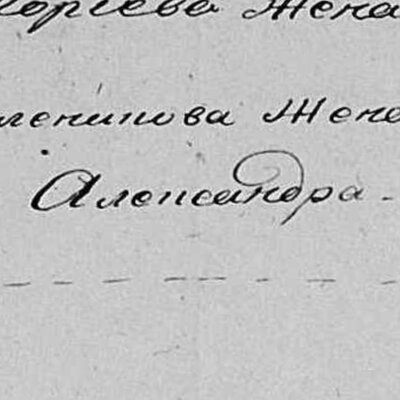 горгева Жена
ленинова Жена
Александра -